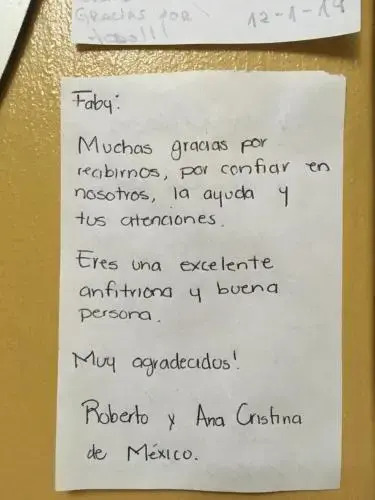 Gracias por
12-1-19
Faby:
Muchas gracias por
recibirnos, por confiar en
nosotros, la ayuda y
tus atenciones.
Eres una excelente
anfitriona y buena
persona.
Muy agradecidos!
Roberto y Ana Cristina
de México.